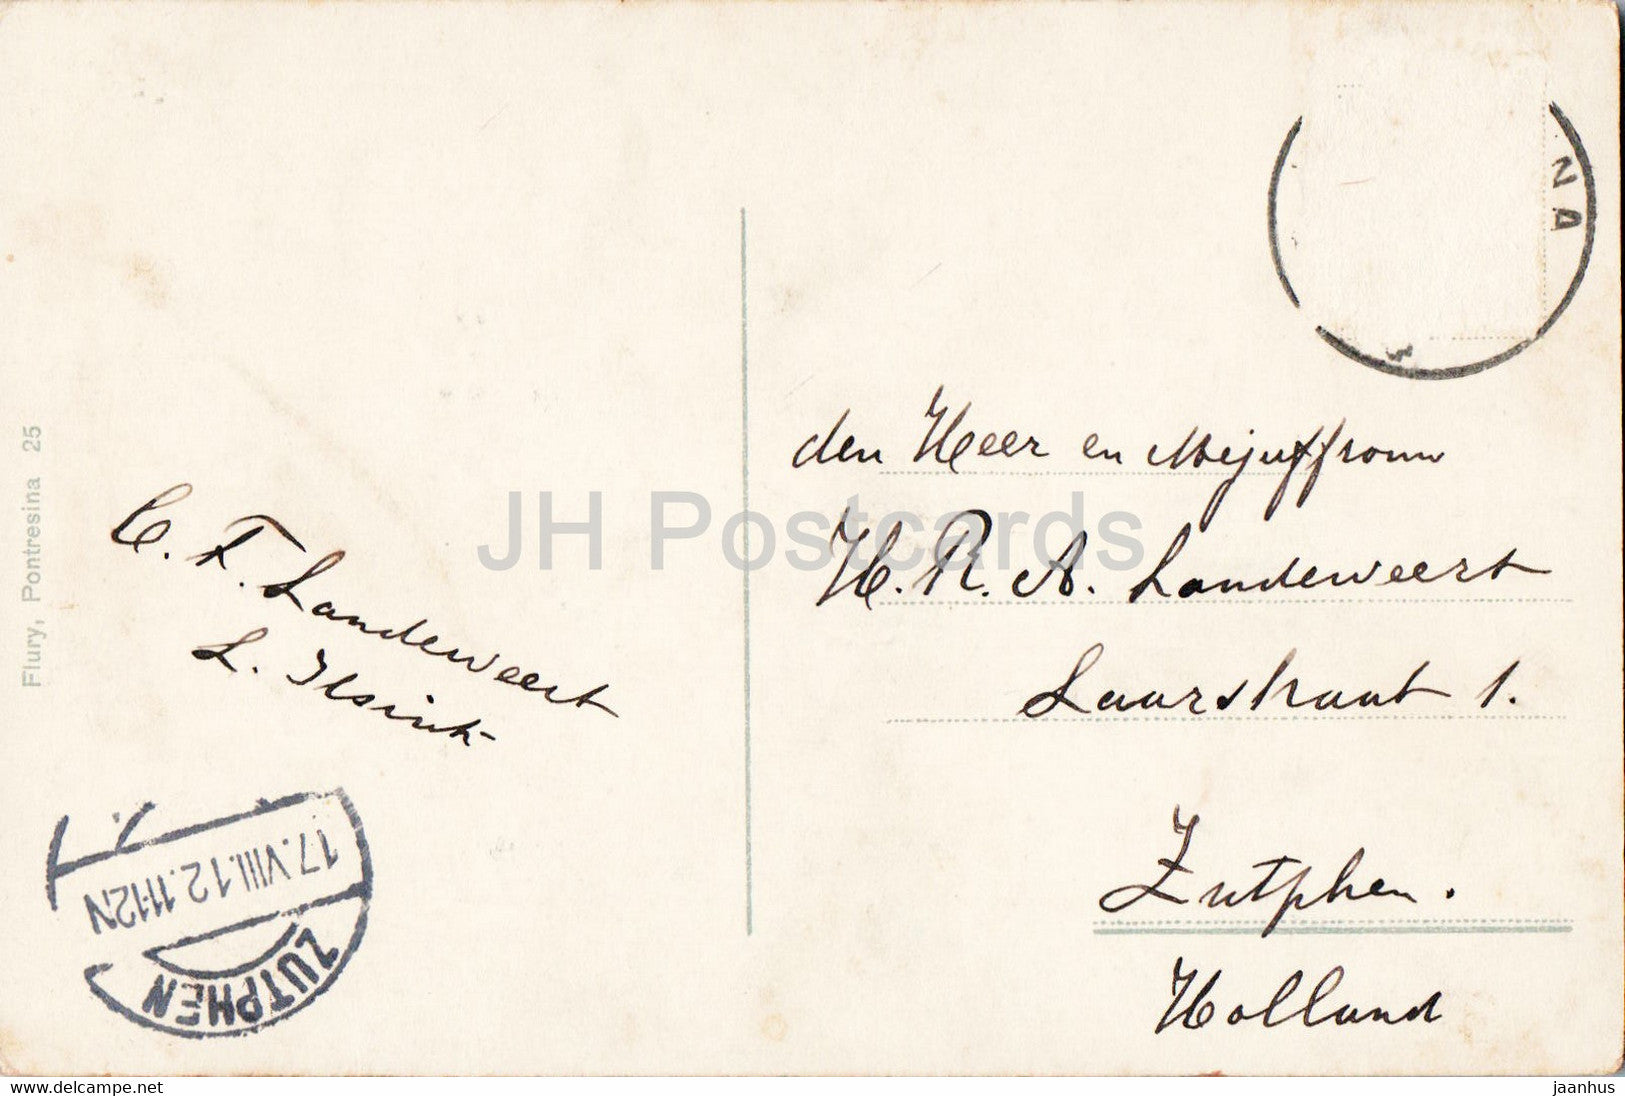 Flury, Pontresina 25
C. F. Landeweert
L. Ilsink
17.VIII.12.11-12N
ZUTPHEN
NA
den Heer en Mejuffrouw
H. R. A. Landeweert
Laarstraat 1.
Zutphen.
Holland
JH Postcards
www.delcampe.net
jaanhus